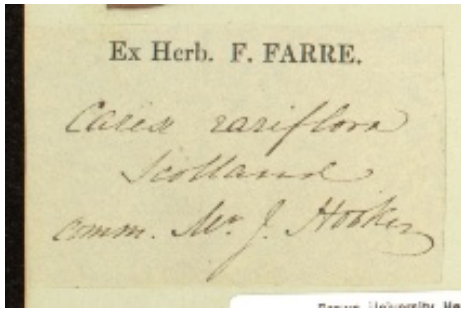 Ex Herb. F. FARRE.
Carex rariflora
Scotland
comm. Mr. J. Hooker
Brown University He